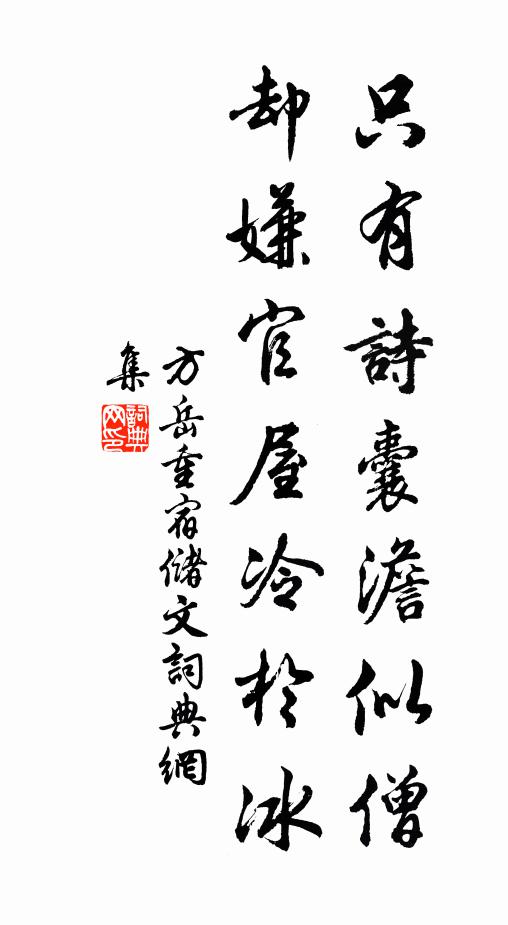 只有詩囊澹似僧
却嫌官屋冷於冰
方岳重宿儲文詞典網
集
詞典网印